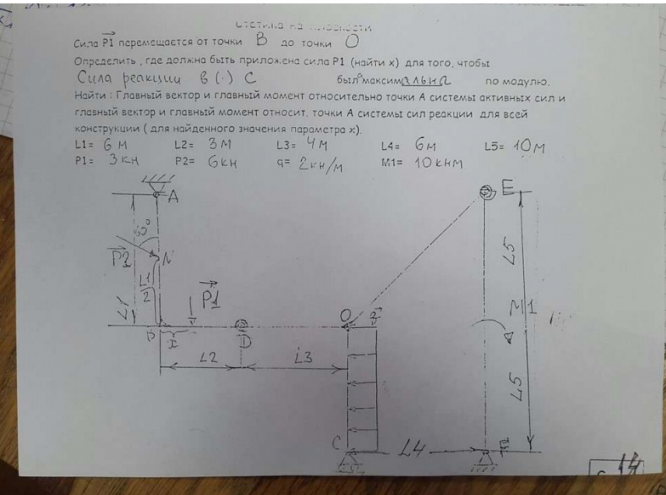 Статика на плоскости
Сила P1 перемещается от точки B до точки O
Определить, где должна быть приложена сила P1 (найти x) для того, чтобы
Сила реакции в (·) C был максимальна по модулю.
Найти: Главный вектор и главный момент относительно точки A системы активных сил и
главный вектор и главный момент относит. точки A системы сил реакции для всей
конструкции (для найденного значения параметра x).
L1= 6 м L2= 3 м L3= 4 м L4= 6 м L5= 10 м
P1= 3 кн P2= 6 кн q= 2 кн/м M1= 10 кнм
A
E
60°
P2
L1
L1
2
P1
L5
O
D
x
L2
L3
L5
C
L4
14